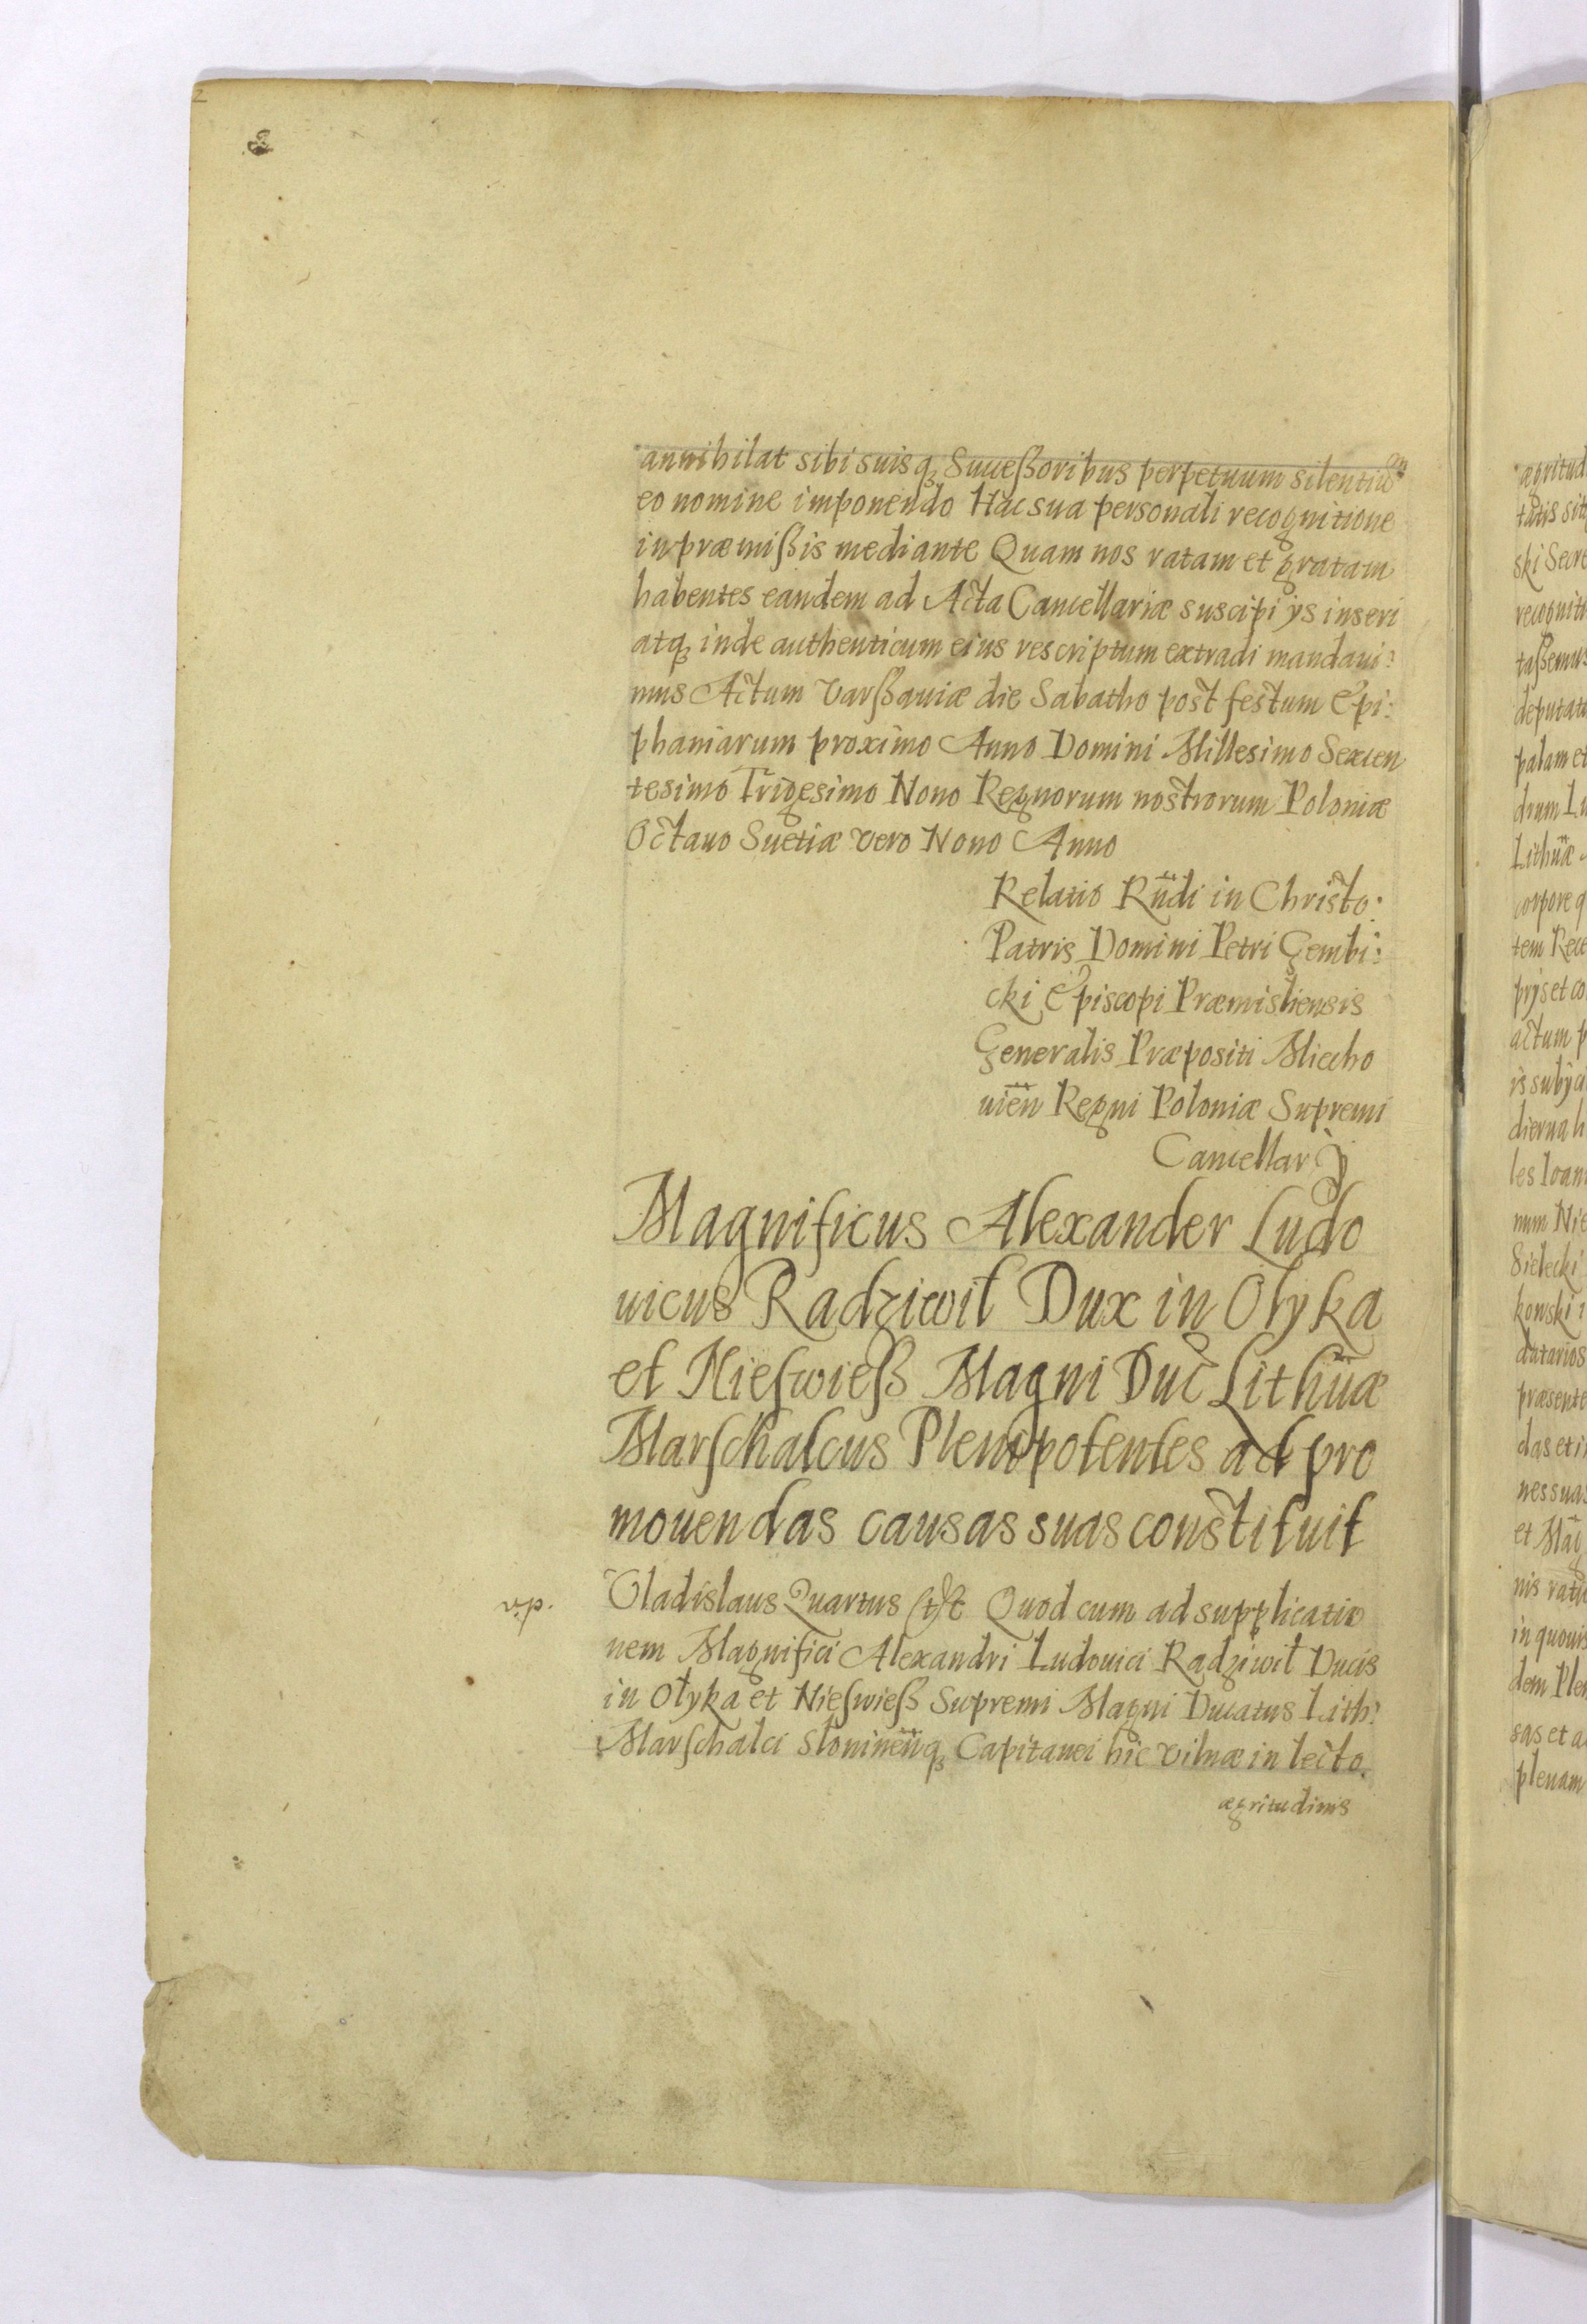 2
annihilat sibi suisq₃ Succeßoribus perpetuum silentium
eo nomine imponendo Hac sua personali recognitione
in præmißis mediante Quam nos ratam et gratam
habentes eandem ad Acta Cancellariæ suscipi ijs inseri
atq₃ inde authenticum eius rescriptum extradi mandaui:
mus Actum Varßauiæ die Sabatho post festum Epi:
phaniarum proximo Anno Domini Millesimo Sexcen
tesimo Trigesimo Nono Regnorum nostrorum Poloniæ
Octauo Suetiæ vero Nono Anno
Relatio Rn̄di in Christo:
Patris Domini Petri Gembi:
cki Episcopi Præmisliensis
Generalis Præpositi Miecho
uien̄ Regni Poloniæ Supremi
Cancellarij
Magnificus Alexander Ludo
uicus Radziwił Dux in Ołyka
et Nieſwieß Magni Duc̄ Lithūæ
Marſchalcus Plenipotentes ad pro
mouendas causas suas constituit
Vladislaus Quartus etc̄ Quod cum ad supplicatio
nem Magnifici Alexandri Ludouici Radziwił Ducis
in Ołyka et Nieſwieß Supremi Magni Ducatus Lith:
Marſchalci Słonimen̄q₃ Capitanei hic Vilnæ in lecto
ægritudinis
ægritud
tatis sit
ski Secre
recogniti
taßemus
deputat
palam et
drum Lu
Lithūæ
corpore q
tem Rect
prijs et co
actum p
is subija
dierna h
les Ioan
num Nie
Sielecki
kowski i
datarios
præsente
das et i
nes suas
et Mag
nis ratu
in quouis
dem Plen
sas et a
plenam